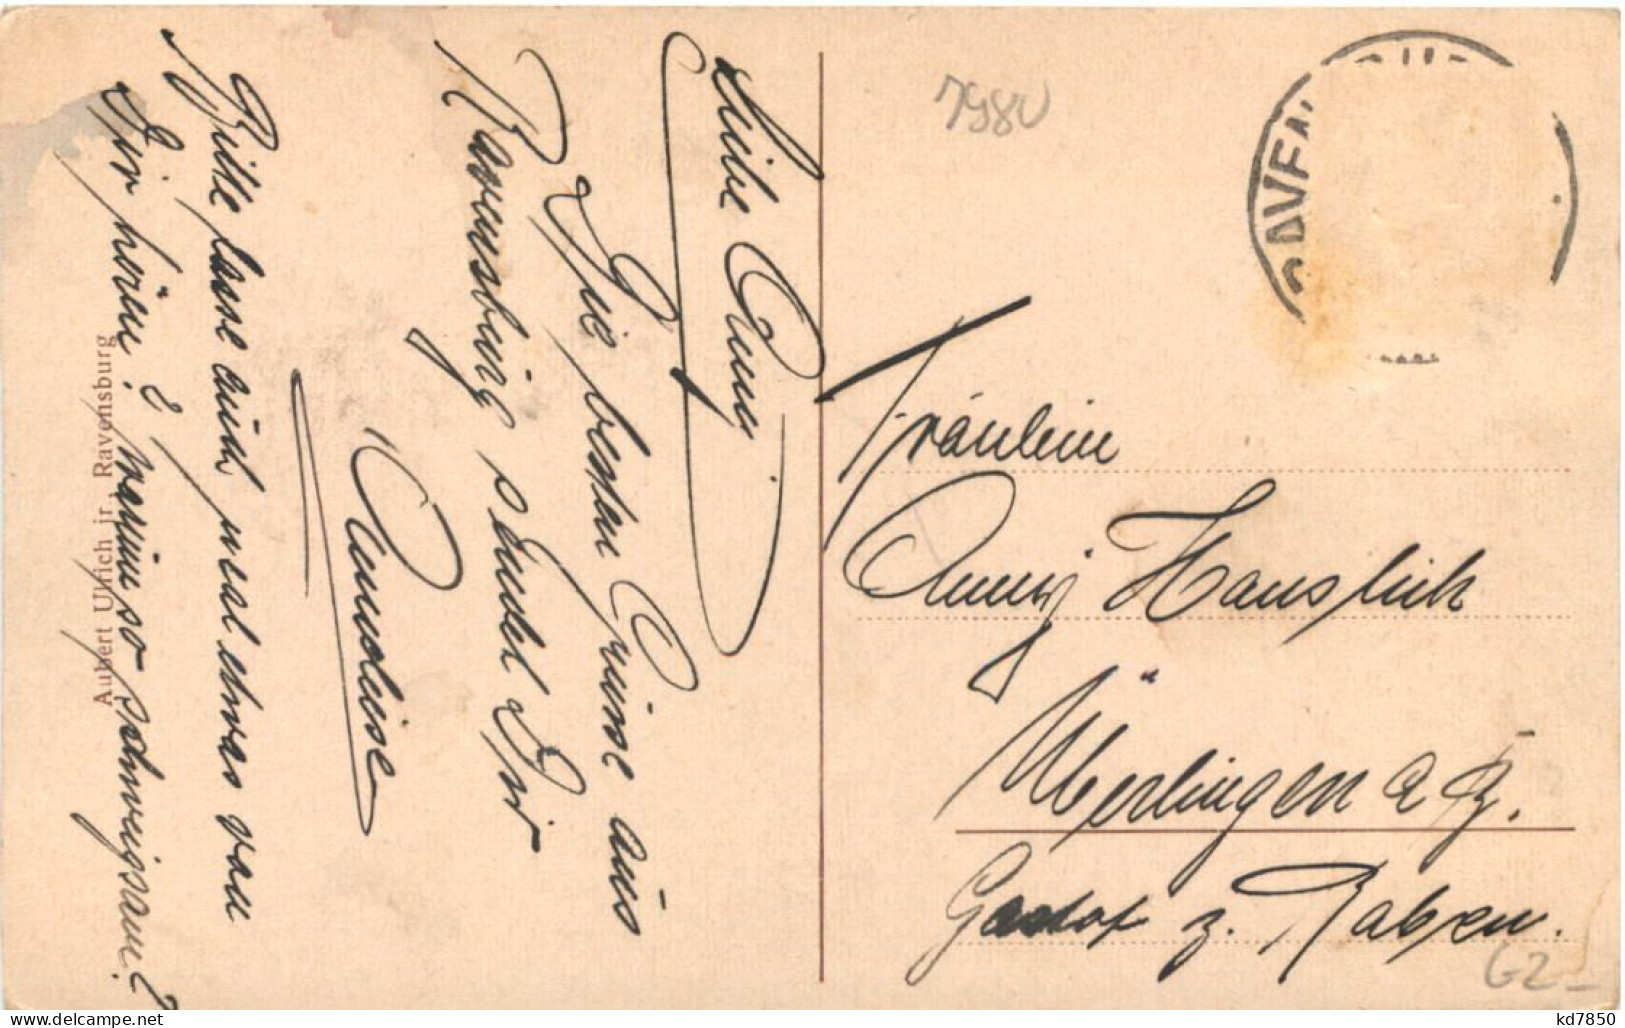 Liebe Anny
Die besten Grüsse aus
Ravensburg sendet Dir
Anneliese
Bitte lasse auch mal etwas von
Dir hören! warum so schweigsam?
Aubert Ulrich jr. Ravensburg
7980
Fräulein
Anny Hauslich
Überlingen a
Gasthof z. Raben.
G2-
kd7850